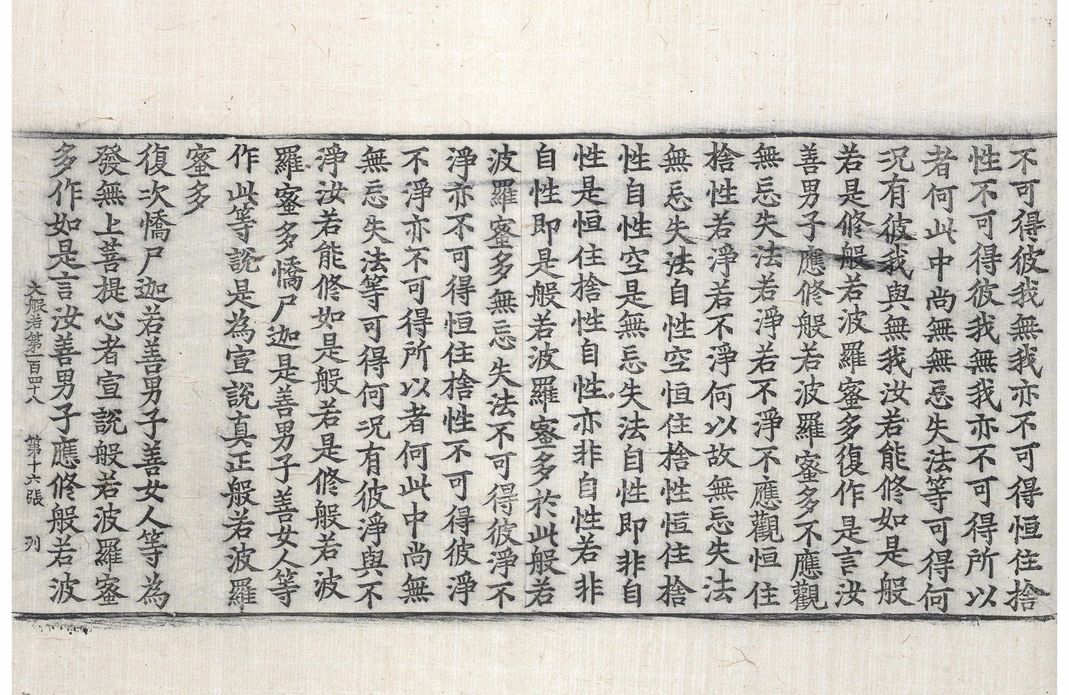 不可得彼我無我亦不可得恒住捨
性不可得彼我無我亦不可得所以
者何此中尚無無忘失法等可得何
况有彼我與無我汝若能修如是般
若是修般若波羅蜜多復作是言汝
善男子應修般若波羅蜜多不應觀
無忘失法若淨若不淨不應觀恒住
捨性若淨若不淨何以故無忘失法
無忘失法自性空恒住捨性恒住捨
性自性空是無忘失法自性即非自
性是恒住捨性自性亦非自性若非
自性即是般若波羅蜜多於此般若
波羅蜜多無忘失法不可得彼淨不
淨亦不可得恒住捨性不可得彼淨
不淨亦不可得所以者何此中尚無
無忘失法等可得何况有彼淨與不
淨汝若能修如是般若是修般若波
羅蜜多憍尸迦是善男子善女人等
作此等說是為宣說真正般若波羅
蜜多
復次憍尸迦若善男子善女人等為
發無上菩提心者宣說般若波羅蜜
多作如是言汝善男子應修般若波
大般若第一百四十八 第十六張 列